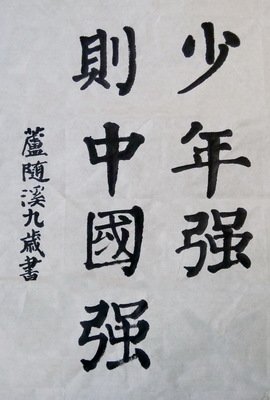 少年强
則中國强
蘆随溪九歲書